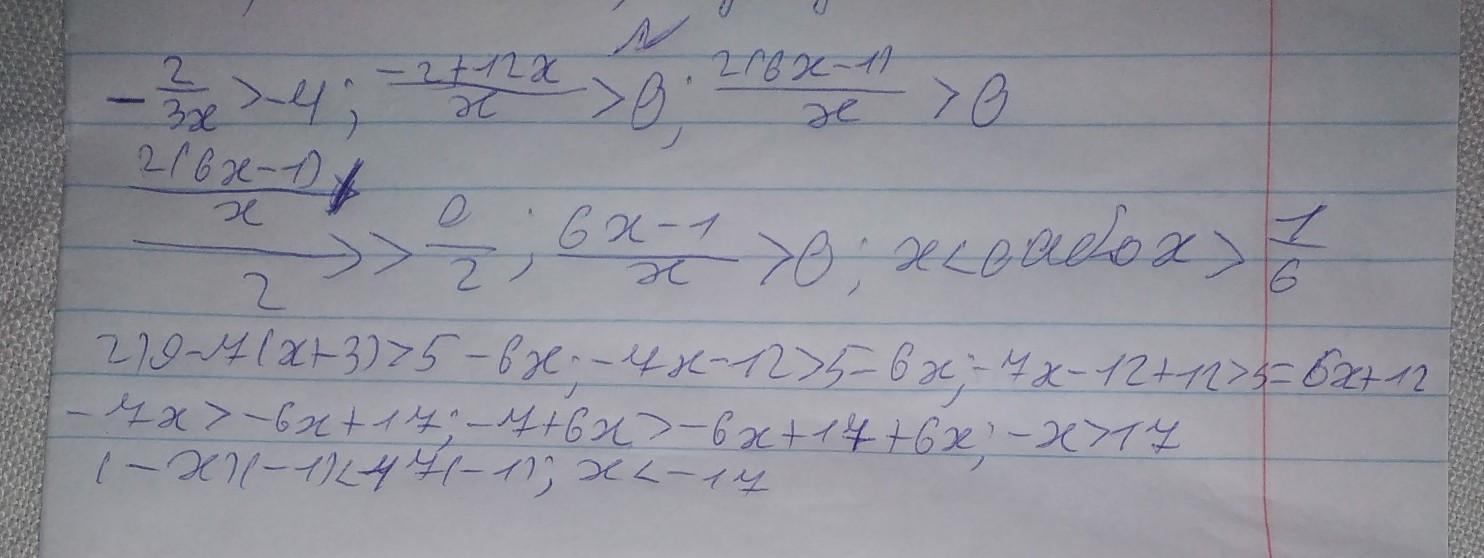 -2/3x > -4; (-2+12x)/x > 0; 2(6x-1)/x > 0
(2(6x-1)/x)/2 > 0/2; (6x-1)/x > 0; x < 0 або x > 1/6
2) 9-7(x+3)>5-6x; -7x-12>5-6x; -7x-12+12>5-6x+12
-7x>-6x+17; -7+6x>-6x+17+6x; -x>17
(-x)(-1)<17(-1); x<-17